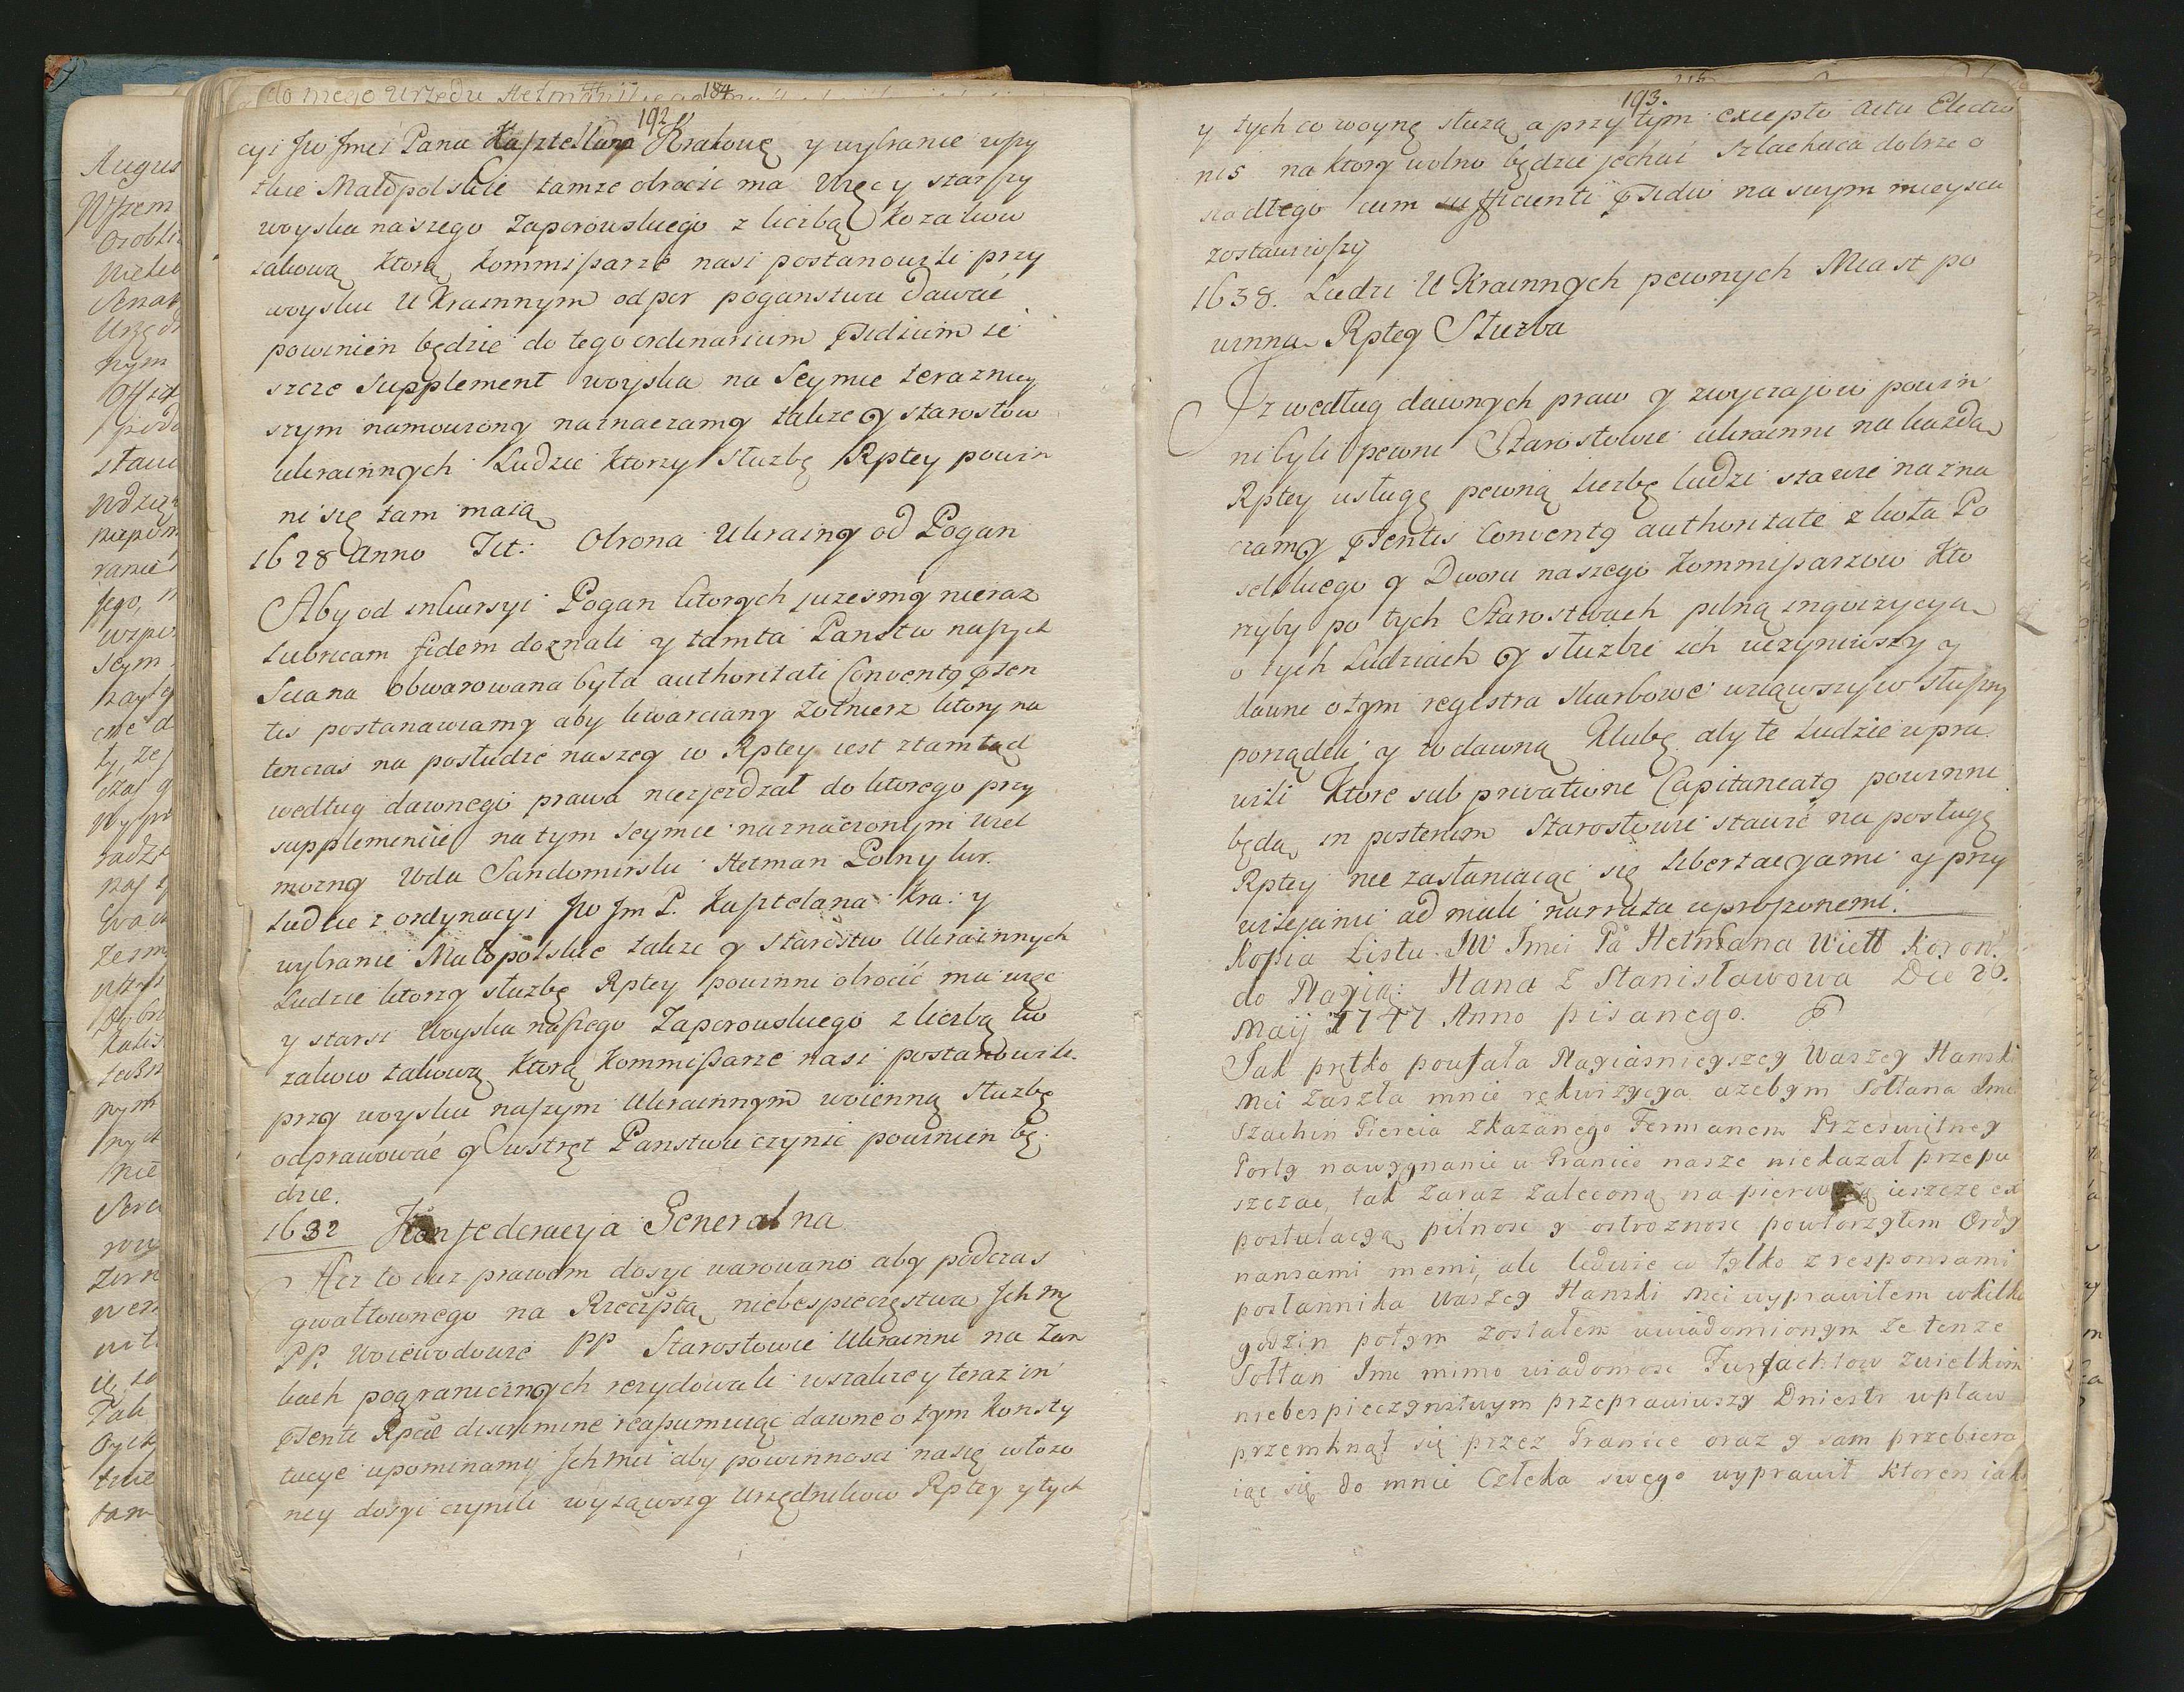 do mego Urzędu Hetman
184
192
cyi Jw Jmci Pana Kasztellana Krakowę y wybranie wszy
tkie Małopolskie tamze obrocic ma Więc y starszy
woyska naszego Zaporowskiego z liczbą Kozakow
takową ktorą Kommissarze nasi postanowili przy
woysku Ukrainnym odpor poganstwu dawać
powinien będzie do tego ordinarium psidium ie
szcze Supplement woyska na Seymie terazniey
szym namowiony naznaczamy także y starostow
ukrainnych Ludzie ktorzy Służbę Rptey powin
ni się tam maią
1628 Anno Tit: Obrona Ukrainy od Pogan
Aby od inkursyi Pogan ktorych iuzesmy nieraz
Lubricam fidem doznali y tamta Panstw naszych
Sciana obwarowana była authoritati Conventq psen
tis postanawiamy aby kwarciany Zołnierz ktory na
tenczas na posłudze naszey w Rptey iest ztamtąd
według dawnego prawa niezjezdzał do ktorego przy
supplemencie na tym Seymie naznaczonym wiel
mozny Wda Sandomirski Hetman Polny kor.
Ludzie z ordynacyi Jw Jm P. Kasztelana Kra: y
wybranie Małopolskie także y Starostw Ukrainnych
Ludzie ktorzy służbę Rptey powinni obrocić ma więc
y starsi Woyska naszego Zaporowskiego z liczbą ko
zakow takową ktorą Kommissarze nasi postanowili
przy woysku naszym Ukrainnym woienną Służbę
odprawować y wstręt Panstwu czynic powinien bę
dzie.
1632 Konfederacya Generalna
Acz to iuz prawem dosyc warowano aby podczas
gwałtownego na Rzeczpta niebespieczęstwa Jchmę
PP. Woiewodowie PP Starostowie Ukrainni na Zam
kach pogranicznych rezydowali wszakze y teraz in
psenti Rpcæ discrimine reassumuiąc dawne o tym Konsty
tucye upominamy Jchmci aby powinnosci na się włozo
ney dosyć czynili wyiąwszy Urzędnikow Rptey y tych
193.
y tych co woynę służą a przytym excepto Actu Electio
nis na ktory wolno będzie jechać Szlachcica dobrze o
siadłego cum sufficienti psidio na swym mieyscu
zostawiwszy
1638. Ludzi Ukrainnych pewnych Miast po
winna Rptey Służba
Iz według dawnych praw y zwyczajow powin
ni byli pewni Starostowie ukrainni na kazdą
Rptey usługę pewną liczbę ludzi stawic nazna
czamy psentis Conventq authoritate z koła Po
selskiego y Dworu naszego Kommissarzow kto
rzyby po tych Starostwach pilną inqwizycyą
o tych Ludziach y służbie ich uczyniwszy y
dawne o tym regestra Skarbowe wziąwszy w słuszny
porządek y w dawną Klubę aby te Ludzie wpra
wili ktore sub privatione Capitaneatq powinni
będą in posterum Starostowie stawić na posługę
Rptey nie zasłaniaiąc się libertacyami y przy
wileiami ad male narrata uproszonemi.
Kopia Listu JW Jmci Pa Hetmana Wiell Koron.
do Nayia: Hana Z Stanisławowa Die 20.
Maij 1747 Anno pisanego.
Jak prętko poufała Nayiasnieyszey Waszey Hanski
Mci zaszła mnie rekwizycya azebym Sołtana Jmci
Szachin Giereia zkazanego Fermanem Przeswiętney
Porty nawygnanie w Granice nasze niekazał przepu
szczac, tak zaraz zaleconą na pierwszą ieszcze ex
postulacyą pilnosc y ostroznosc powtorzyłem Ordy
nansami memi, ale ledwie co tylko z responsami
posłannika Waszey Hanski Mci wyprawiłem wkilka
godzin potym zostałem uwiadomionym ze tenze
Sołtan Jmc mimo wiadomosc Furszachtow zwielkim
niebespieczynstwym przeprawiwszy Dniestr wpław
przemknął się przez Granice oraz y sam przebiera
iąc się do mnie Człeka swego wyprawił Ktoren iak